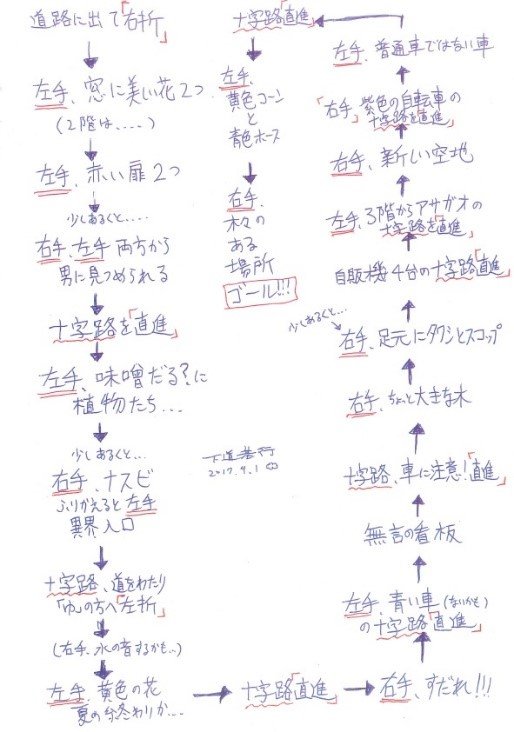 道路に出て「右折」
左手、窓に美しい花2つ
(2階は.....)
左手、赤い扉2つ
少しあるくと.....
右手、左手両方から
男に見つめられる
十字路を「直進」
左手、味噌だる?に
植物たち...
少しあるくと...
右手、ナスビ
ふりかえると左手
異界入口
十字路、道をわたり
「ゆ」の方へ「左折」
(右手、水の音するかも...)
左手、黄色の花
夏の終わりか...
十字路「直進」
右手、すだれ!!!
左手、青い車(ないかも)
の十字路「直進」
無言の看板
十字路、車に注意!「直進」
右手、ちょっと大きな木
少しあるくと...
右手、足元にタワシとスコップ
自販機4台の十字路「直進」
左手、3階からアサガオの
十字路を「直進」
右手、新しい空地
「右手」紫色の自転車の
十字路を「直進」
左手、普通車ではない車
十字路「直進」
左手、
黄色コーン
と
青色ホース
右手、
木々の
ある
場所
ゴール!!!
2017.9.1